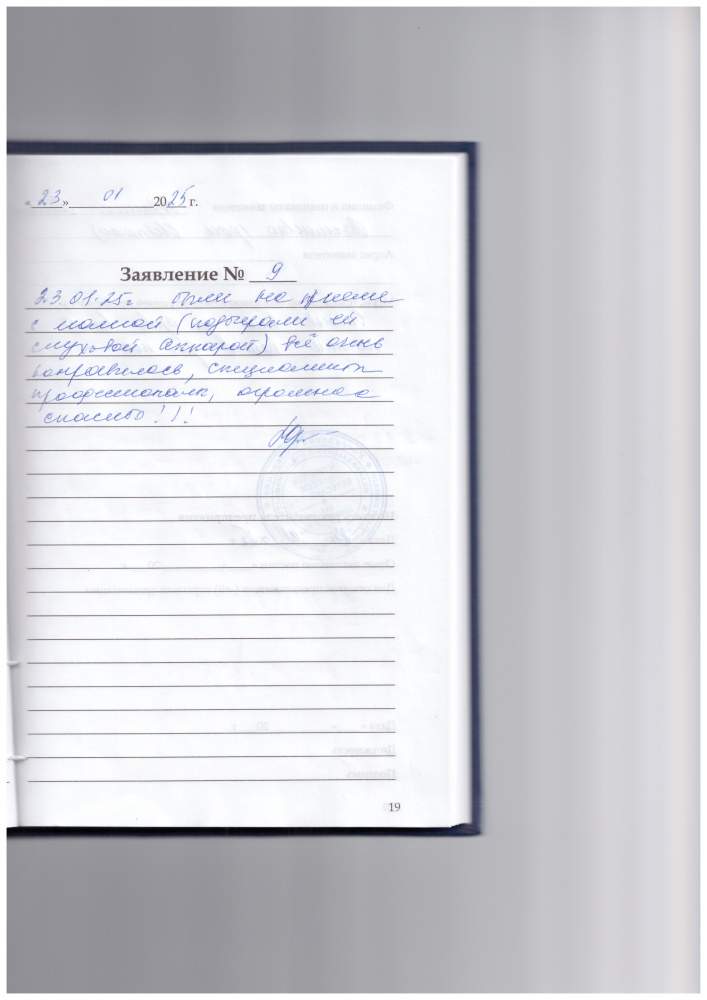 «23» 01 2025 г.
Заявление № 9
23.01.25г были на приеме
с мамой (подбирали ей
слуховой аппарат) всё очень
понравилось, специалисты
профессионалы, огромное
спасибо!!!
19